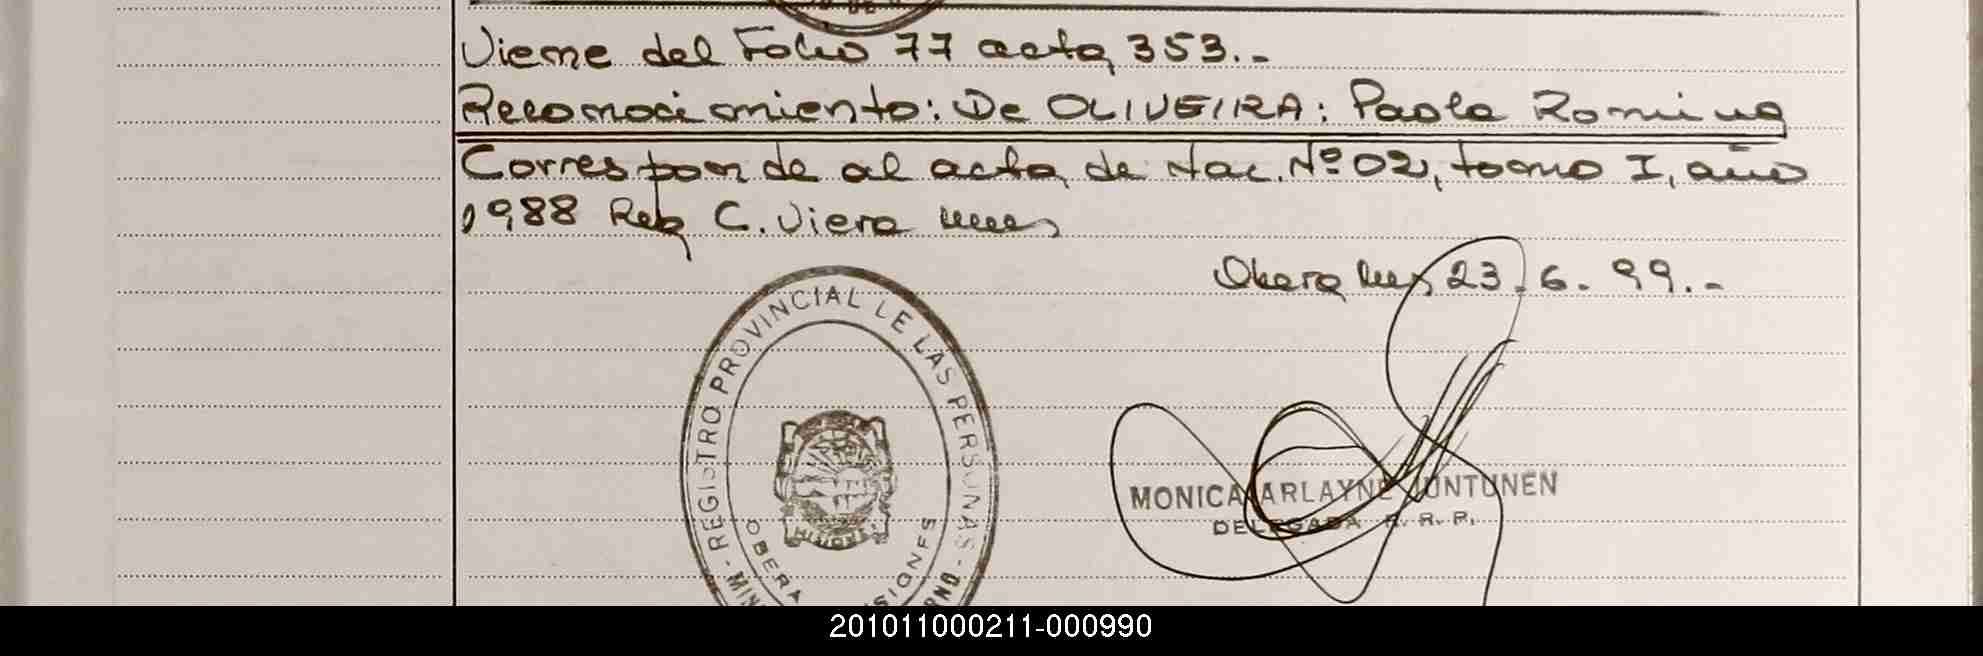 Viene del Folio 77 acta 353.-
Reconocimiento: De OLIVEIRA: Paola Romina
Corresponde al acta de Nac. Nº 02, tomo I, año
1988 Reg C. Viera
Obera Mnes 23.6.99.-
REGISTRO PROVINCIAL DE LAS PERSONAS -
OBERA MISIONES
MISIONES
MONICA ARLAYNE JUNTUNEN
DELEGADA R. R. P.
201011000211-000990